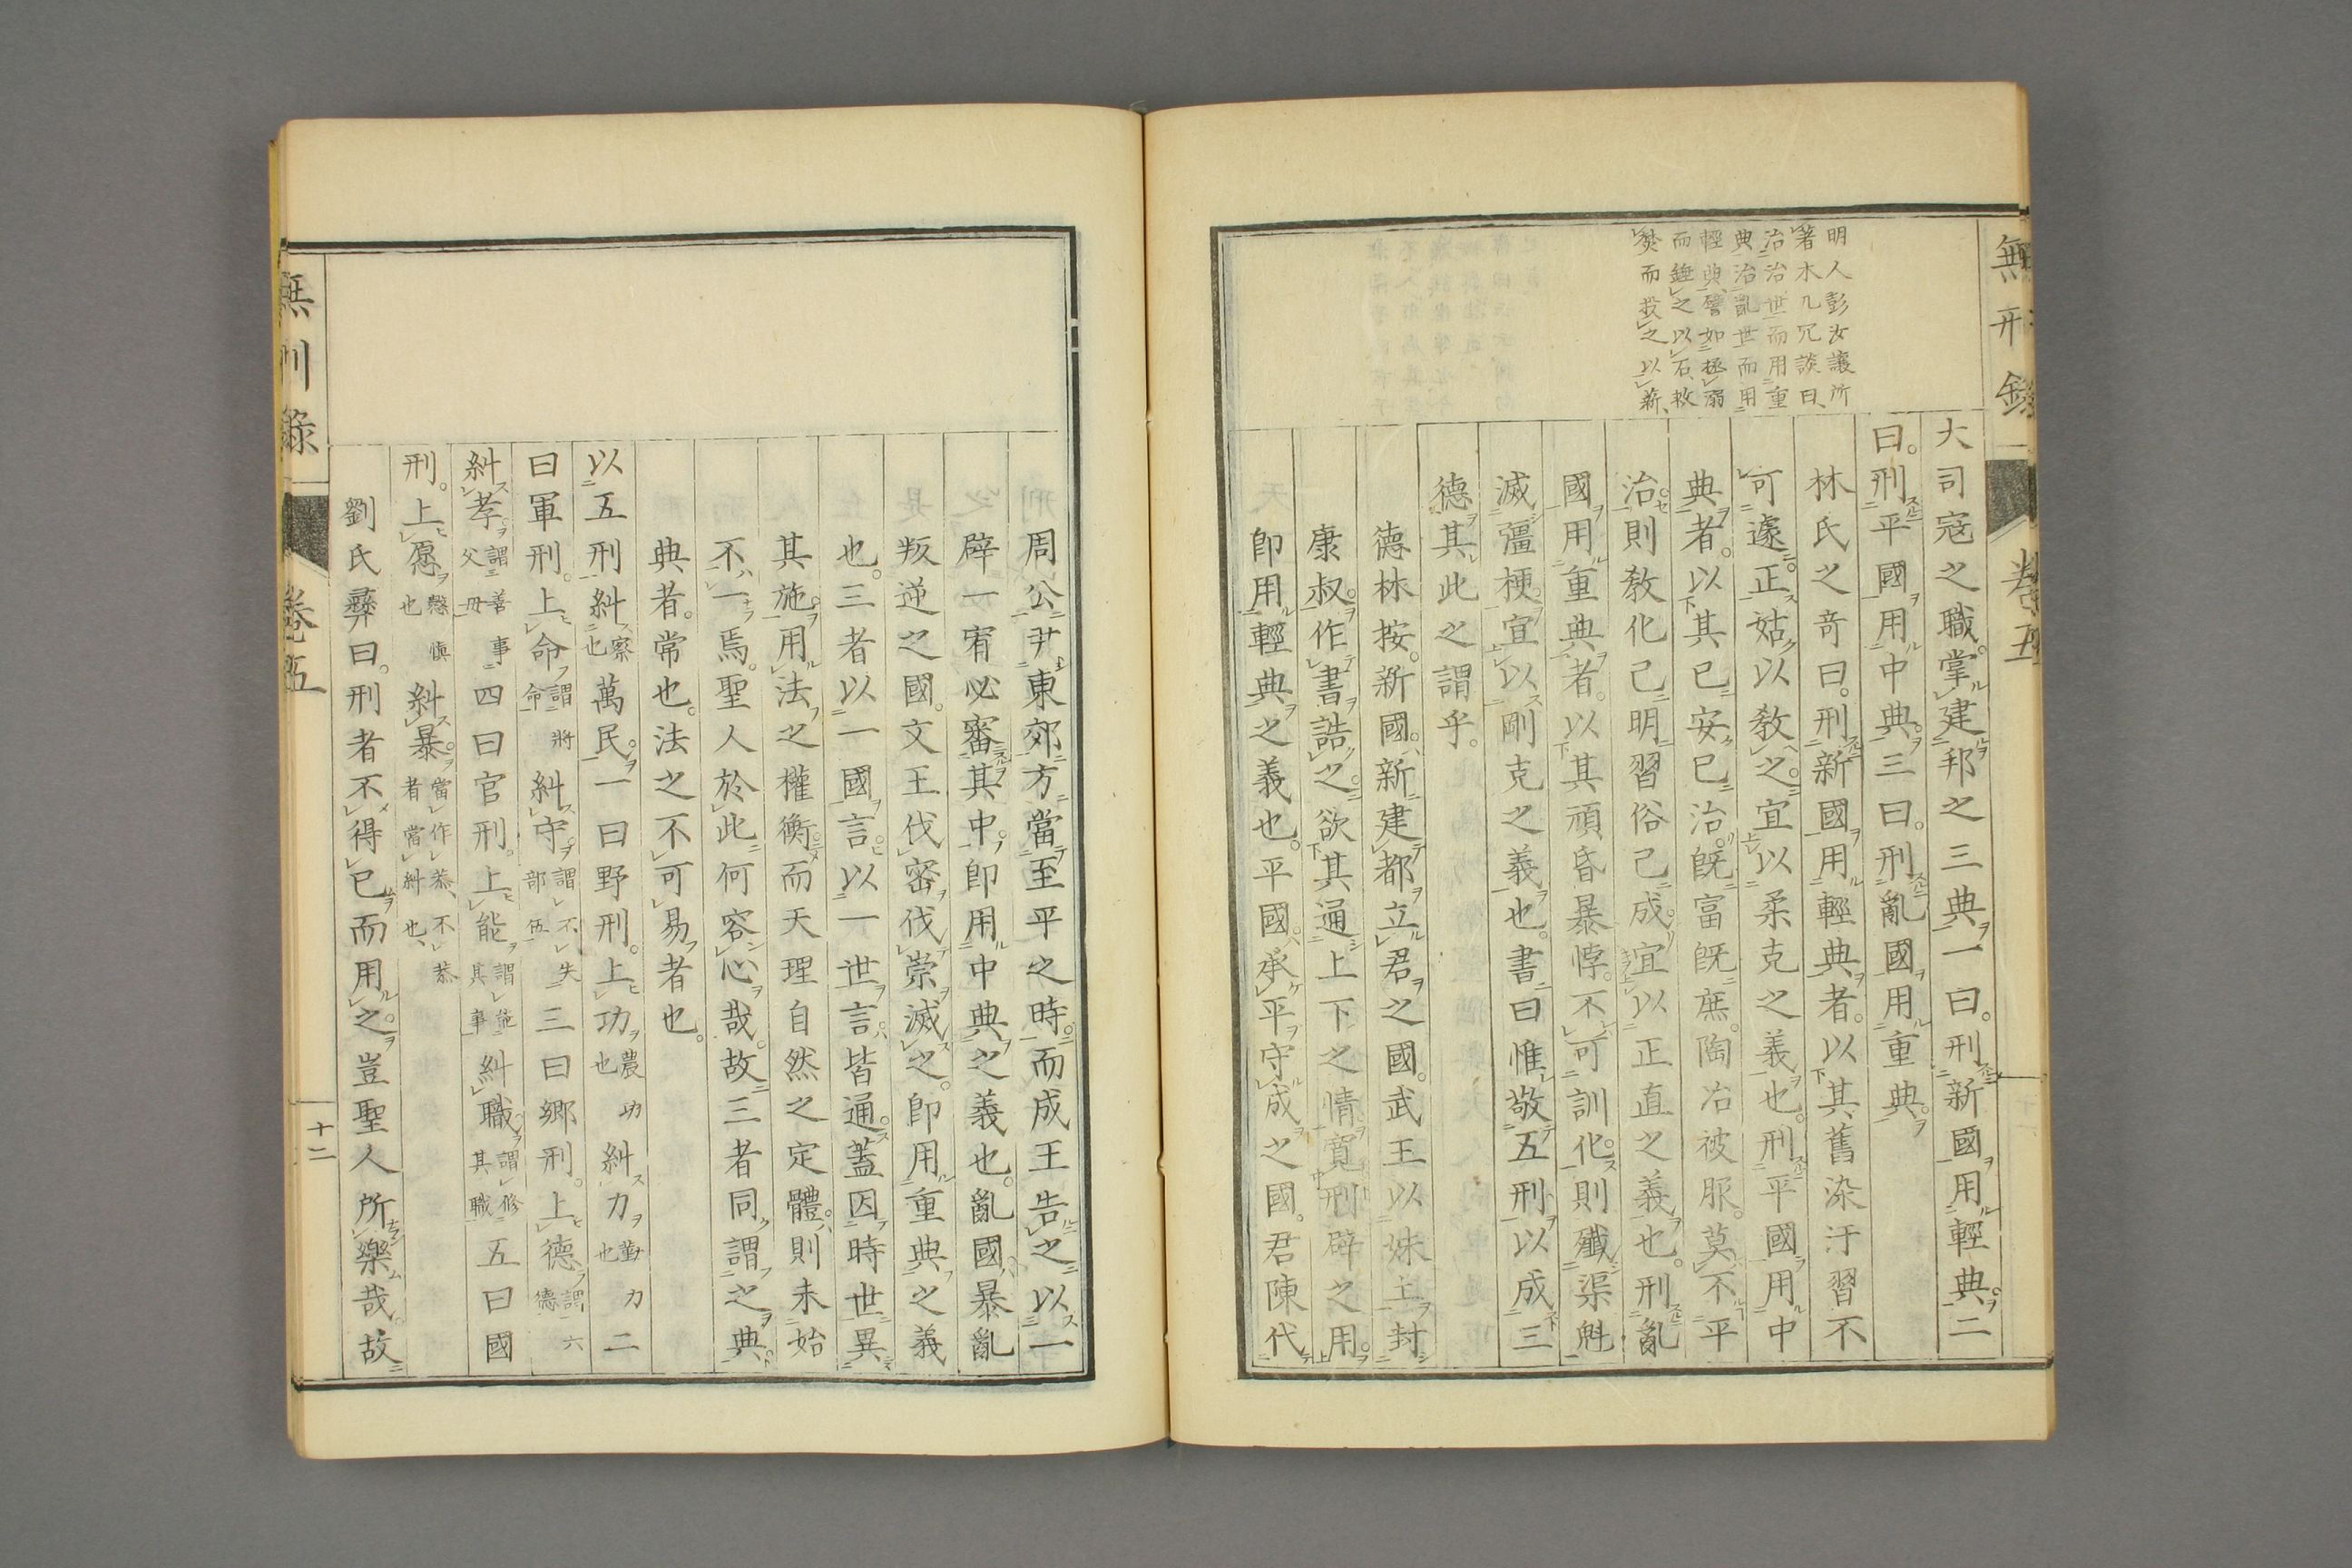 無刑錄
卷五
明人彭汝讓所
著木几冗談曰、
治治世而用重
典治亂世而用
輕典、譬如拯溺
而錘之以石、救
焚而投之以薪、
大司寇之職。掌建邦之三典一曰。刑新國用輕典。二
曰。刑平國用中典。三曰。刑亂國用重典。
林氏之奇曰。刑新國用輕典者。以其舊染汙習不
可遽正。姑以敎之。宜以柔克之義也。刑平國用中
典者。以其已安已治。旣富旣庶。陶冶被服。莫不平
治。則敎化已明習俗已成。宜以正直之義也。刑亂
國用重典者。以其頑昏暴悖。不可訓化。則殲渠魁
滅彊梗。宜以剛克之義也。書曰惟敬五刑以成三
德其此之謂乎。
德林按。新國。新建都立君之國。武王以妹土封
康叔。作書誥之。欲其通上下之情寬刑辟之用。
卽用輕典之義也。平國。承平守成之國。君陳代
周公尹東郊。方當至平之時。而成王告之以一
辟一宥必審其中。卽用中典之義也。亂國暴亂
叛逆之國。文王伐密伐崇滅之。卽用重典之義
也。三者以一國言。以一世言。皆通。蓋因時世異
其施。用法之權衡。而天理自然之定體。則未始
不一焉。聖人於此何容心哉。故三者同謂之典。
典者。常也。法之不可易者也。
以五刑糾察也萬民。一曰野刑。上功農功也糾力勤力也二
曰軍刑。上命謂將命糾守。謂不失部伍三曰鄕刑。上德謂六德
糾孝謂善事父母四曰官刑。上能謂能其事糾職。謂修其職五曰國
刑。上愿愨愼也糾暴。當作恭、不恭者當糾也、
劉氏彝曰。刑者不得已而用之。豈聖人所樂哉。故
無刑錄
卷五
十二